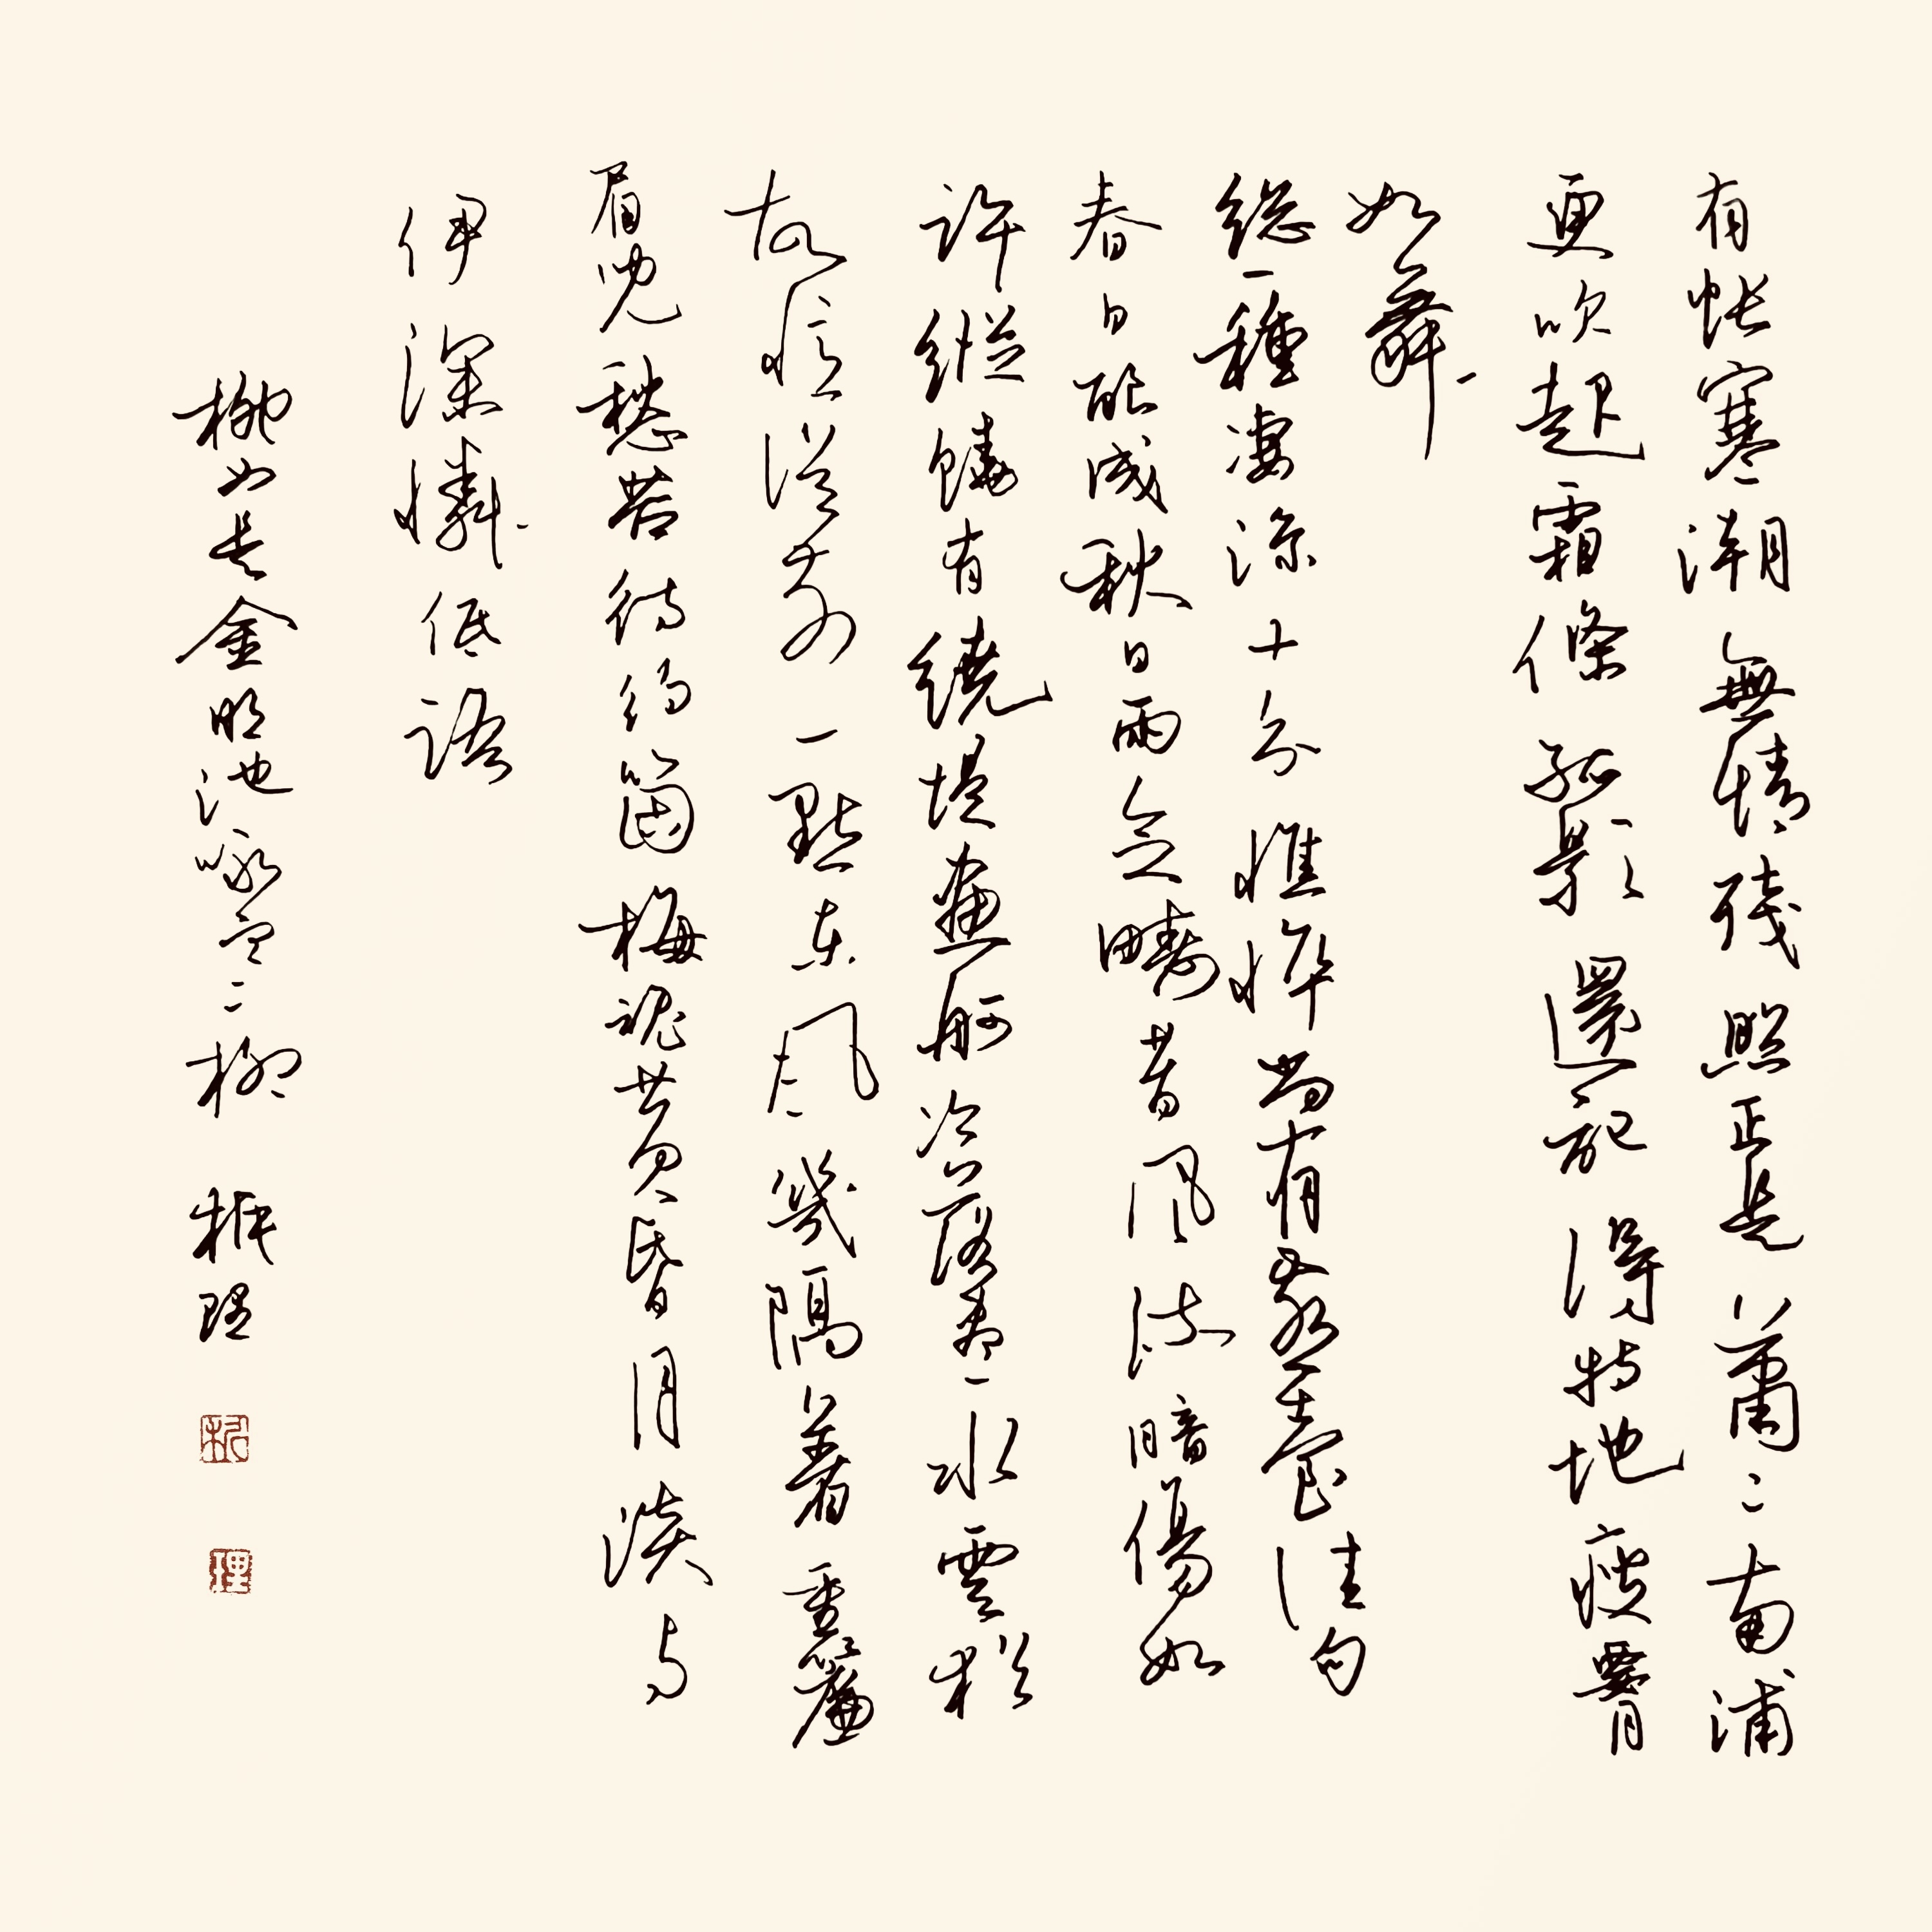 有悵寒潮無情殘照正是蕭〻南浦
更吹起霜條孤影還記得特地瘦腰
如舞
總一種凄涼十分憔悴尚有燕臺佳句
春日釀成秋日雨念疇昔風流暗傷如
許縱饒有繞堤畫舸冷落盡水雲猶
故憶從前一點東風幾隔著重簾
眉兒愁苦待約箇梅魂黃昏月淡与
伊深憐低語
柳如是金明池詠寒柳 理
理